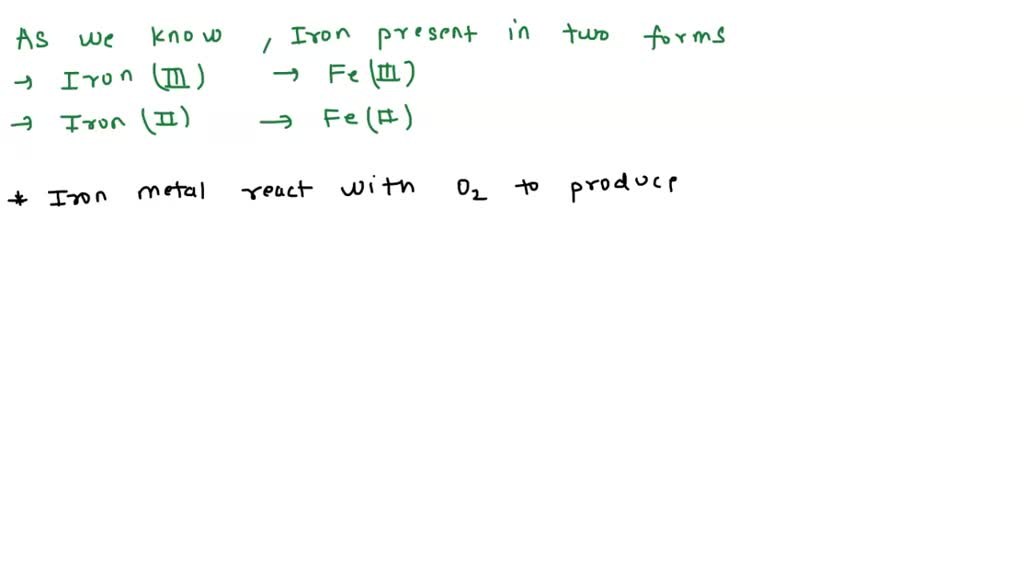 As we know , Iron present in two forms
→ Iron (III) → Fe (III)
→ Iron (II) → Fe (II)
* Iron metal react with O₂ to produce